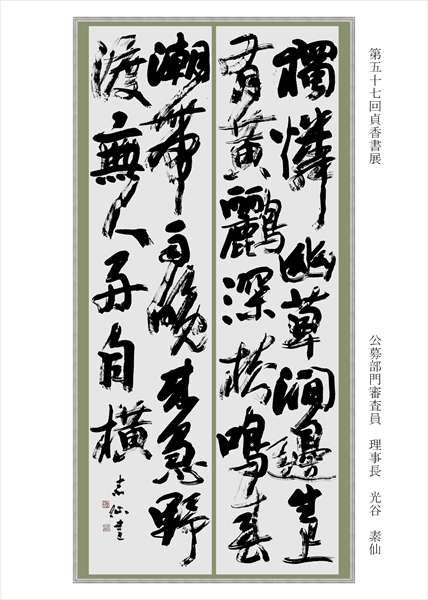 第五十七回貞香書展
公募部門審査員 理事長 光谷 素仙
獨憐幽草澗邊生上
有黄鸝深樹鳴春
潮帶雨晩来急野
渡無人舟自横
素仙書